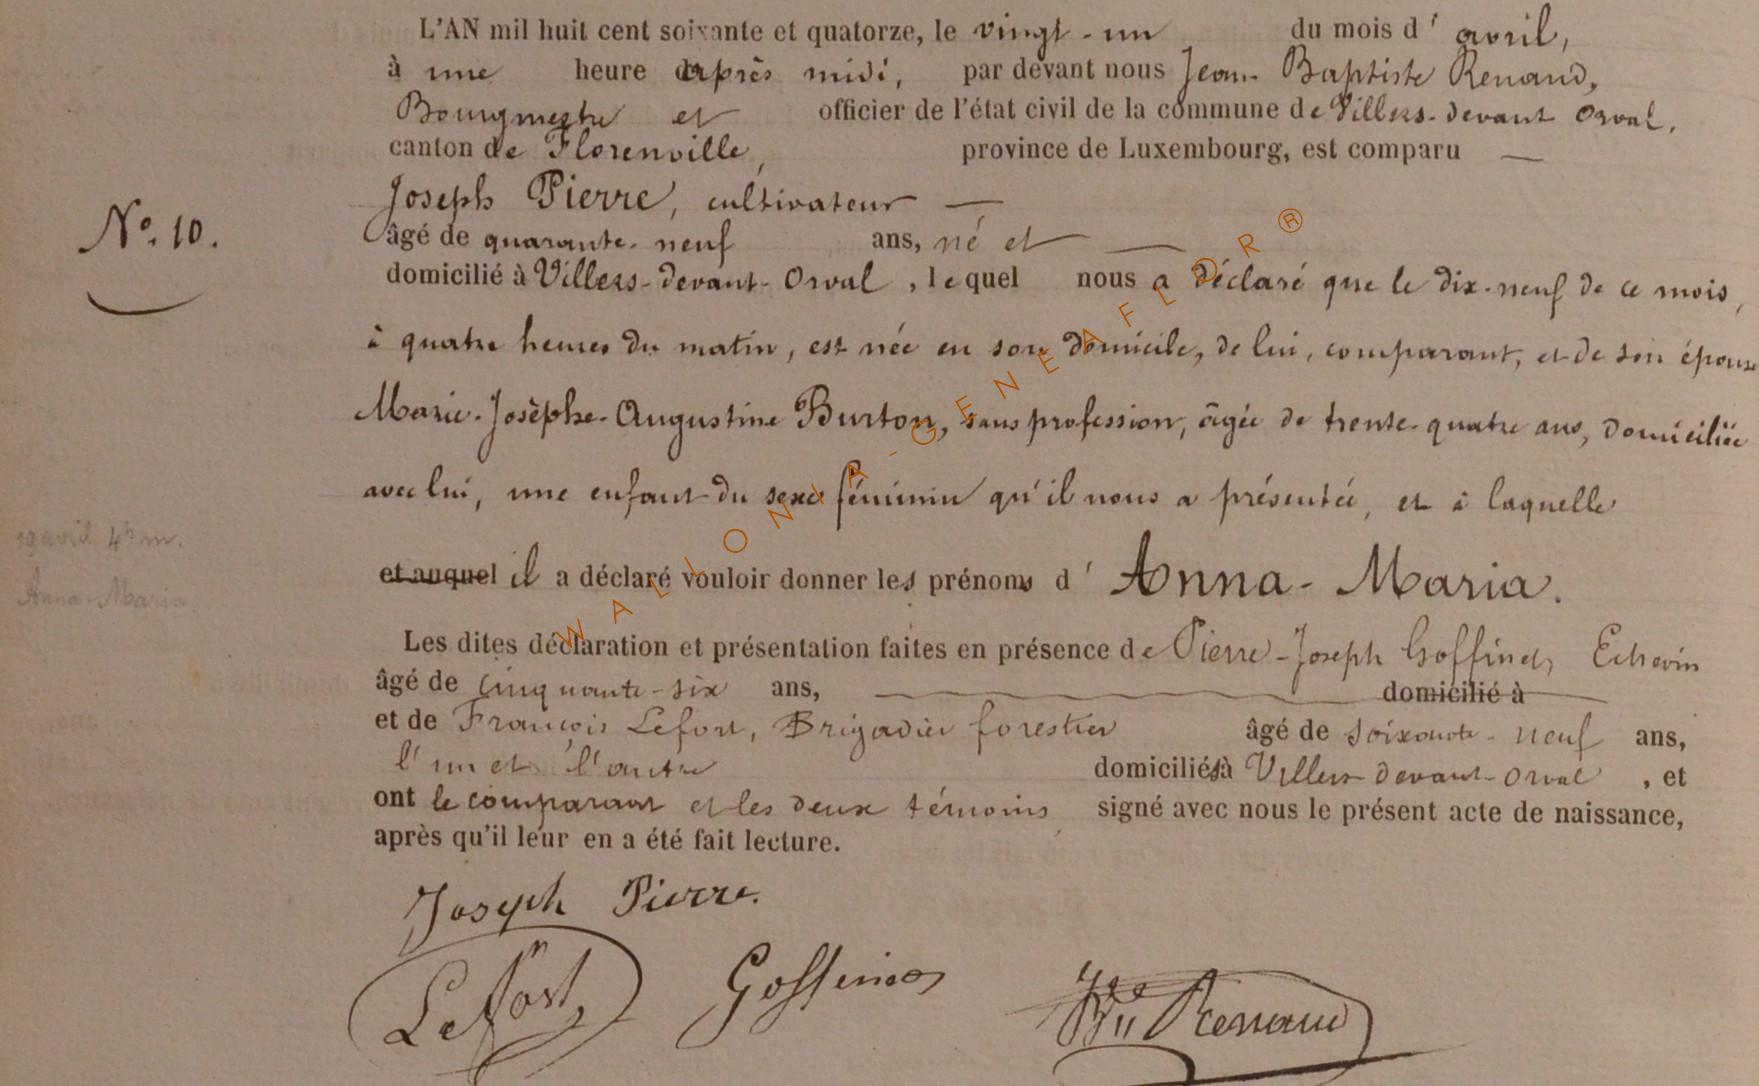 L'AN mil huit cent soixante et quatorze, le vingt-un du mois d' avril,
à une heure après midi, par devant nous Jean Baptiste Renaud,
Bourgmestre et officier de l'état civil de la commune de Villers-devant Orval,
canton de Florenville, province de Luxembourg, est comparu —
Joseph Pierre, cultivateur —
No. 10.
âgé de quarante-neuf ans, né et —
domicilié à Villers-devant-Orval, lequel nous a déclaré que le dix-neuf de ce mois,
à quatre heures du matin, est née en son domicile, de lui, comparant, et de son épouse
Marie-Josèphe-Augustine Burton, sans profession, âgée de trente-quatre ans, domiciliée
avec lui, une enfant du sexe féminin qu'il nous a présentée, et à laquelle
19 avril 4h m.
et auquel il a déclaré vouloir donner les prénoms d' Anna-Maria.
Anna-Maria.
Les dites déclaration et présentation faites en présence de Pierre-Joseph Goffinet, Echevin
âgé de cinquante-six ans, domicilié à
et de François Lefort, Brigadier forestier âgé de soixante-neuf ans,
l'un et l'autre domiciliés à Villers-devant-Orval, et
ont le comparant et les deux témoins, signé avec nous le présent acte de naissance,
après qu'il leur en a été fait lecture.
Joseph Pierre.
Lefort, Goffinet Renaud
WALLONIA-GENEAFLOR®